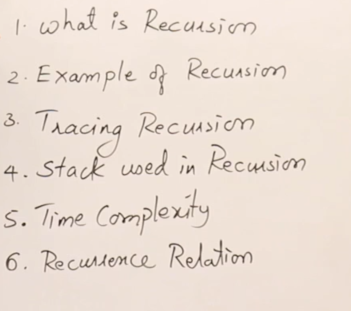 1. What is Recursion
2. Example of Recursion
3. Tracing Recursion
4. Stack used in Recursion
5. Time Complexity
6. Recurrence Relation